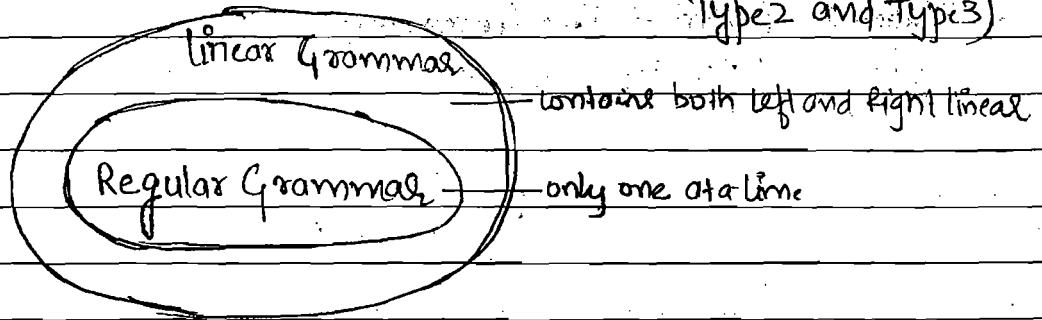 Type2 and Type3)
linear Grammar
contains both left and Right linear
Regular Grammar
only one at a time